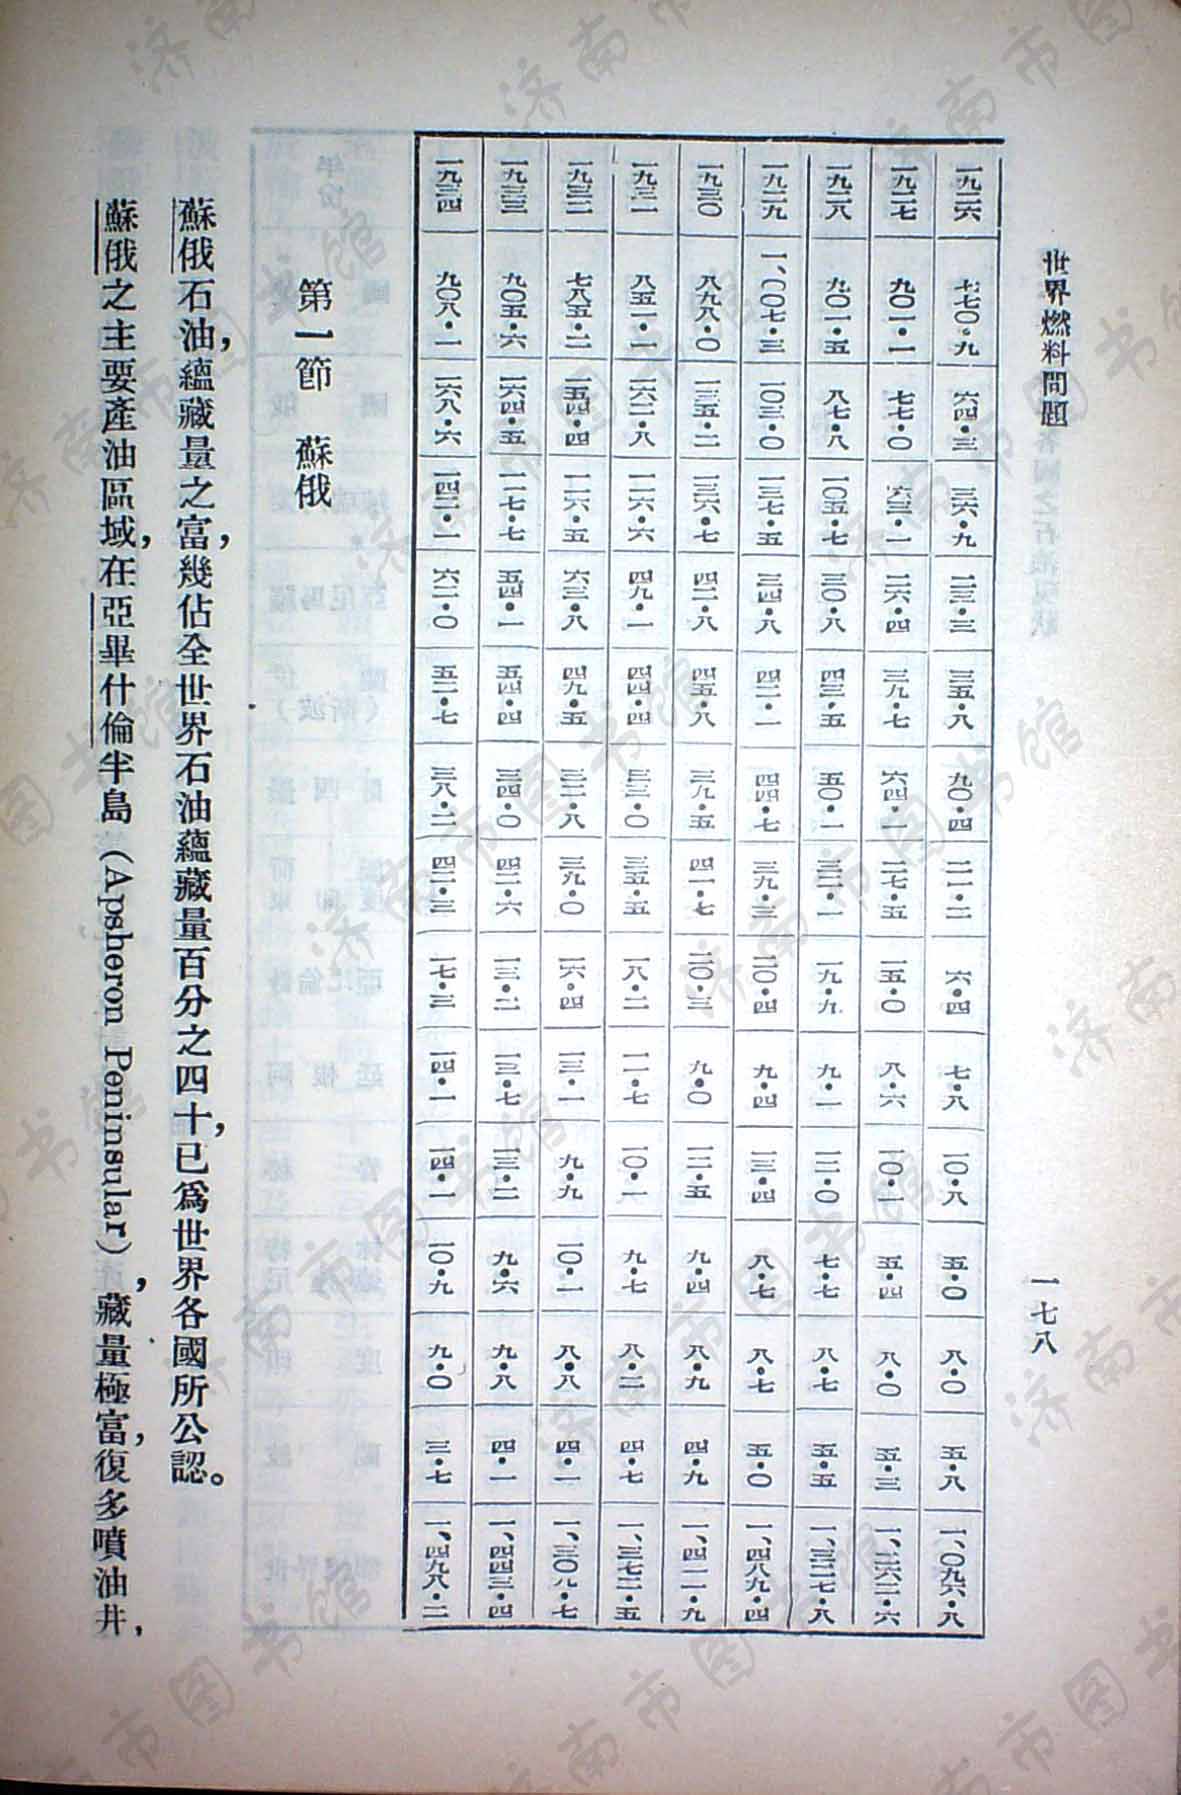 世界燃料問題 一七八
一九二六 七七〇·九 六四·三 三六·九 二三·三 三五·八 九〇·四 二一·二 六·四 七·八 一〇·八 五·〇 八·〇 五·八 一、〇九六·八
一九二七 九〇一·一 七七·〇 六三·一 二六·四 三九·七 六四·一 二七·五 一五·〇 八·六 一〇·一 五·四 八·〇 五·三 一、二六二·六
一九二八 九〇一·五 八七·八 一〇五·七 三〇·八 四三·五 五〇·一 三二·一 一九·九 九·一 一二·〇 七·七 八·七 五·五 一、三二七·八
一九二九 一、〇〇七·三 一〇三·〇 一三七·五 三四·八 四二·一 四四·七 三九·三 二〇·四 九·四 一三·四 八·七 八·七 五·〇 一、四八九·四
一九三〇 八九八·〇 一三五·二 一三六·七 四二·八 四五·八 三九·五 四一·七 二〇·三 九·〇 一二·五 九·四 八·九 四·九 一、四一一·九
一九三一 八五一·一 一六二·八 一一六·六 四九·一 四四·四 三三·〇 三五·五 一八·二 一一·七 一〇·一 九·七 八·二 四·七 一、三七二·五
一九三二 七八五·二 一五四·四 一一六·五 六三·八 四九·五 三二·八 三九·〇 一六·四 一三·一 九·九 一〇·一 八·八 四·一 一、三〇九·七
一九三三 九〇五·六 一六四·五 一一七·七 五四·一 五四·四 三四·〇 四二·六 一三·二 一三·七 一三·二 九·六 九·八 四·一 一、四四三·四
一九三四 九〇八·一 一六八·六 一四二·一 六二·〇 五二·七 三八·二 四二·三 一七·三 一四·一 一四·一 一〇·九 九·〇 三·七 一、四九八·二
第一節 蘇俄
蘇俄石油，蘊藏量之富，幾佔全世界石油蘊藏量百分之四十，已爲世界各國所公認。
蘇俄之主要產油區域，在亞畢什倫半島（Apsheron Peninsular），藏量極富，復多噴油井，
济南市图书馆